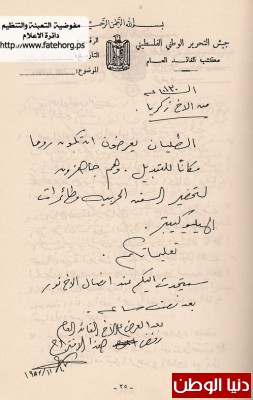 بسم الله الرحمن الرحيم
مفوضية التعبئة والتنظيم
دائرة الاعلام
http://www.fatehorg.ps
جيش التحرير الوطني الفلسطيني
مكتب القائد العام
الموضوع:
من الاخ زكريا
الطليان يعرضون ان تكون روما
مكاناً للتبديل. وهم جاهزون
لتحضير السفن الحربية وطائرات
الهيليوكبتر.
تعليماتكم.
سيتحدث اليكم عند اتصال الاخ نور
بعد نصف ساعه.
بعد العرض على الاخ القائد العام
رفض هذا الاقتراح
- ٢٥ -
دنيا الوطن